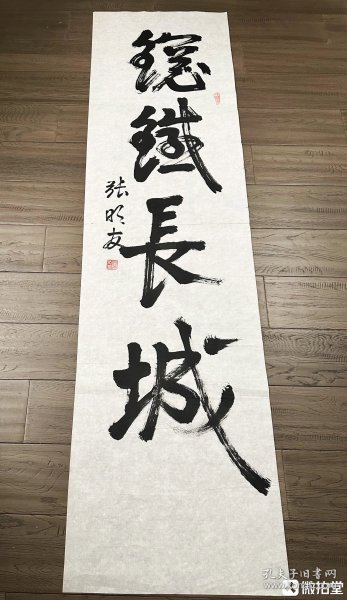 鋼鐵長城
张明友
孔夫子旧书网
微拍堂